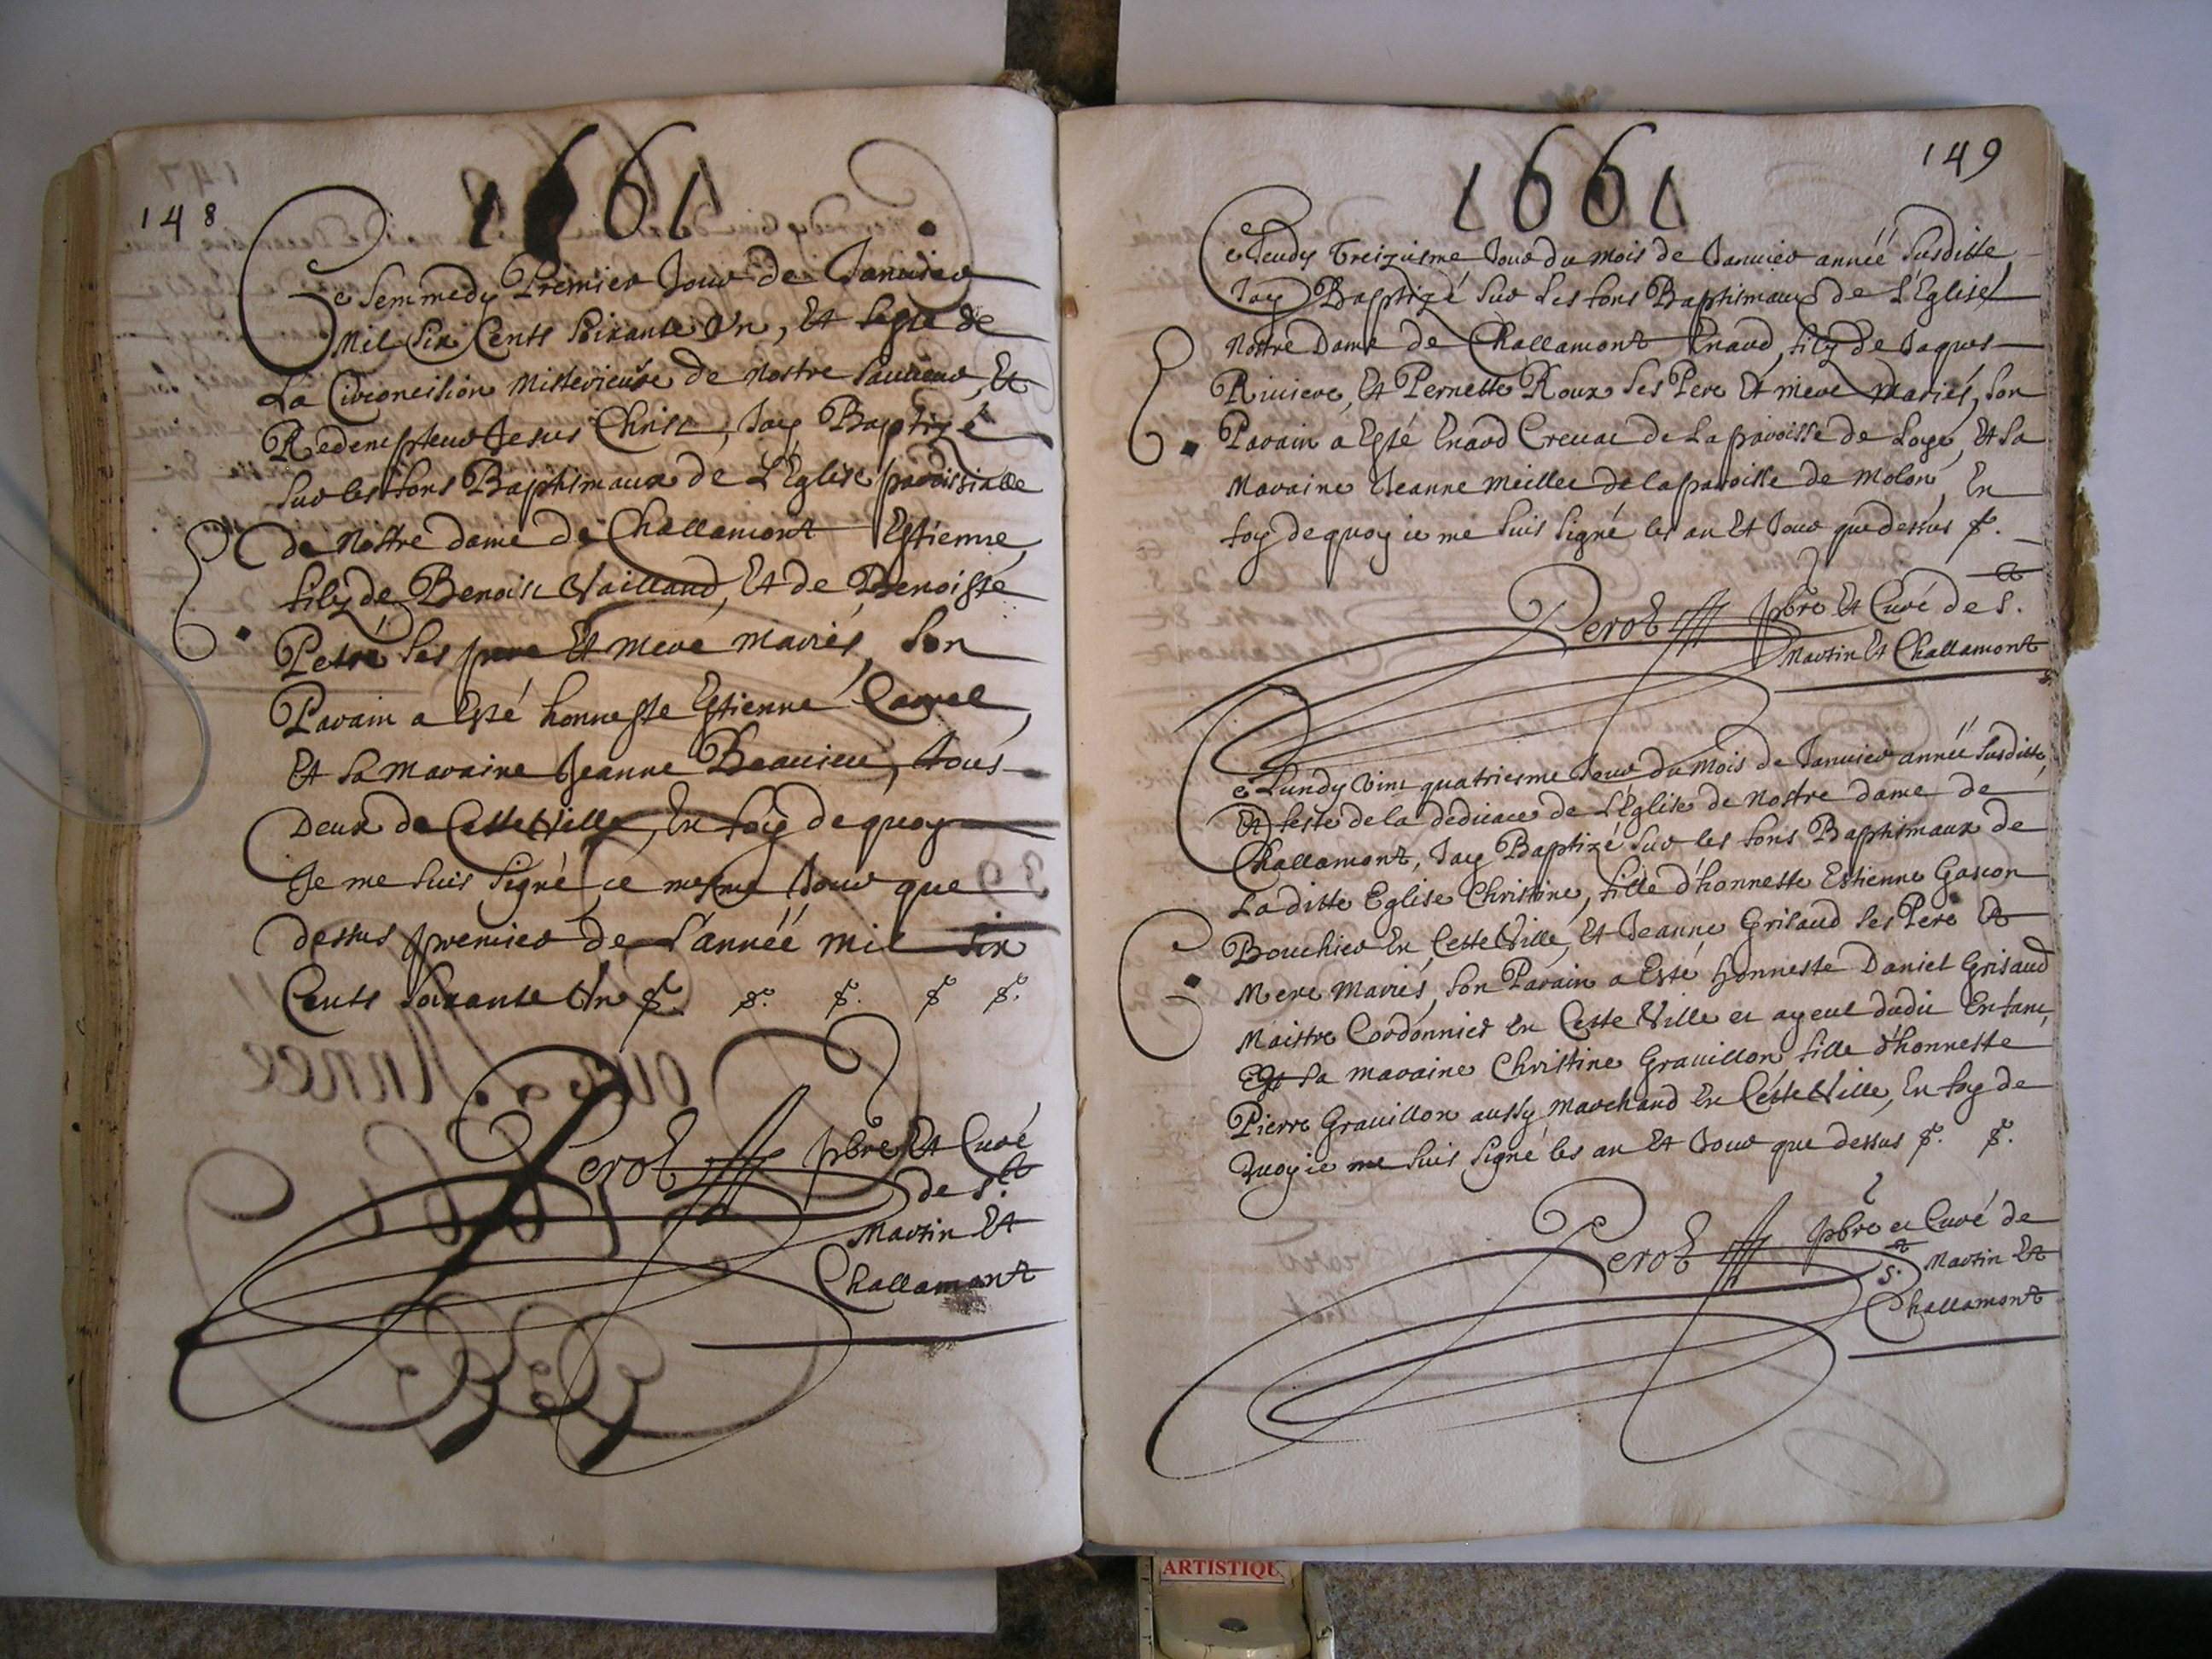 148
1661
Ce Semmedy Premier Jour de Januier
Mil Six Cents Soixante Vn, Et feste de
La Circoncision Misterieuse de Nostre Sauueur, Et
Redempteur Jesus Christ, Jay Baptizé
Sur les fons Baptismaux de L'Eglise paroissialle
de Nostre dame de Challamont Estienne,
filz de Benoist Vailland, Et de Benoiste
Petré ses pere Et mere mariés, Son
Parain a Esté honneste Estienne Carrel,
Et sa maraine Jeanne Beauieu, tous
Deux de Cette Ville, En foy dequoy
Je me suis signé ce mesme Jour que
dessus premier de L'année mil six
Cents soixante Vn $. $. $. $ $.
Perot pbre Et Curé
de S.t
Martin Et
Challamont
149
1661
Ce Jeudy Treiziesme Jour du mois de Januier année susditte,
Jay Baptizé sur les fons Baptismaux de L'Eglise
Nostre Dame de Challamont Enard, filz de Jaques
Riuiere, Et Pernette Roux ses Pere Et mere Mariés, son
Parain a Esté Enard Creuat de La paroisse de Loye, Et sa
Maraine Jeanne Meiller de la paroisse de Molon, En
foy dequoy ie me suis signé les an Et Jour que dessus $.
Perot pbre Et Curé de S.t
Martin Et Challamont
Ce Lundy Vint quatriesme Jour du Mois de Januier année susditte,
Et feste de la dedicace de L'Eglise de Nostre dame de
Challamont, Jay Baptizé sur les fons Baptismaux de
La ditte Eglise Christine, fille d'honneste Estienne Gascon
Bouchier En Cette Ville, Et Jeanne Grisaud ses Pere Et
Mere Mariés, son Parain a Esté honneste Daniel Grisaud
Maistre Cordonnier En Cette Ville et ayeul dudit Enfant,
Et sa maraine Christine Grauillon fille d'honneste
Pierre Grauillon aussy Marchand En Cette Ville, En foy de
Quoy ie me suis signé les an Et Jour que dessus $. $.
Perot pbre et Curé de
S.t Martin Et
Challamont
ARTISTIQU